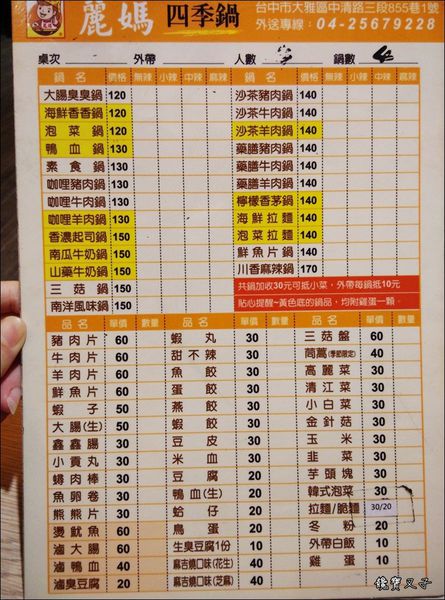 麗媽 四季鍋
台中市大雅區中清路三段855巷1號
外送專線：04-25679228
桌次 外帶 人數 鍋數
鍋名 價格 無辣 小辣 中辣 麻辣 鍋名 價格 無辣 小辣 中辣 麻辣
大腸臭臭鍋 120 沙茶豬肉鍋 140
海鮮香香鍋 120 沙茶牛肉鍋 140
泡菜鍋 120 沙茶羊肉鍋 140
鴨血鍋 130 藥膳豬肉鍋 140
素食鍋 130 藥膳牛肉鍋 140
咖哩豬肉鍋 130 藥膳羊肉鍋 140
咖哩牛肉鍋 130 檸檬香茅鍋 140
咖哩羊肉鍋 130 海鮮拉麵 140
香濃起司鍋 150 泡菜拉麵 140
南瓜牛奶鍋 150 鮮魚片鍋 140
山藥牛奶鍋 150 川香麻辣鍋 170
三菇鍋 150 共鍋加收30元可抵小菜，外帶每鍋抵10元
南洋風味鍋 150 貼心提醒~黃色底的鍋品，均附雞蛋一顆。
品名 單價 數量 品名 單價 數量 品名 單價 數量
豬肉片 60 蝦丸 30 三菇盤 60
牛肉片 60 甜不辣 30 茼蒿(季節限定) 40
羊肉片 60 魚餃 30 高麗菜 30
鮮魚片 60 蛋餃 30 清江菜 30
蝦子 50 燕餃 30 小白菜 30
大腸(生) 50 蝦餃 30 金針菇 30
鑫鑫腸 30 豆皮 30 玉米 30
小貢丸 30 米血 30 韭菜 30
蟳肉棒 30 豆腐 20 芋頭塊 30
魚卵卷 30 鴨血(生) 20 韓式泡菜 30
熊熊片 30 蛤仔 20 拉麵/脆麵 30/20
燙魷魚 60 鳥蛋 20 冬粉 20
滷大腸 60 生臭豆腐1份 10 外帶白飯 10
滷鴨血 40 麻吉燒口味(花生) 40 雞蛋 10
滷臭豆腐 20 麻吉燒口味(芝麻) 40